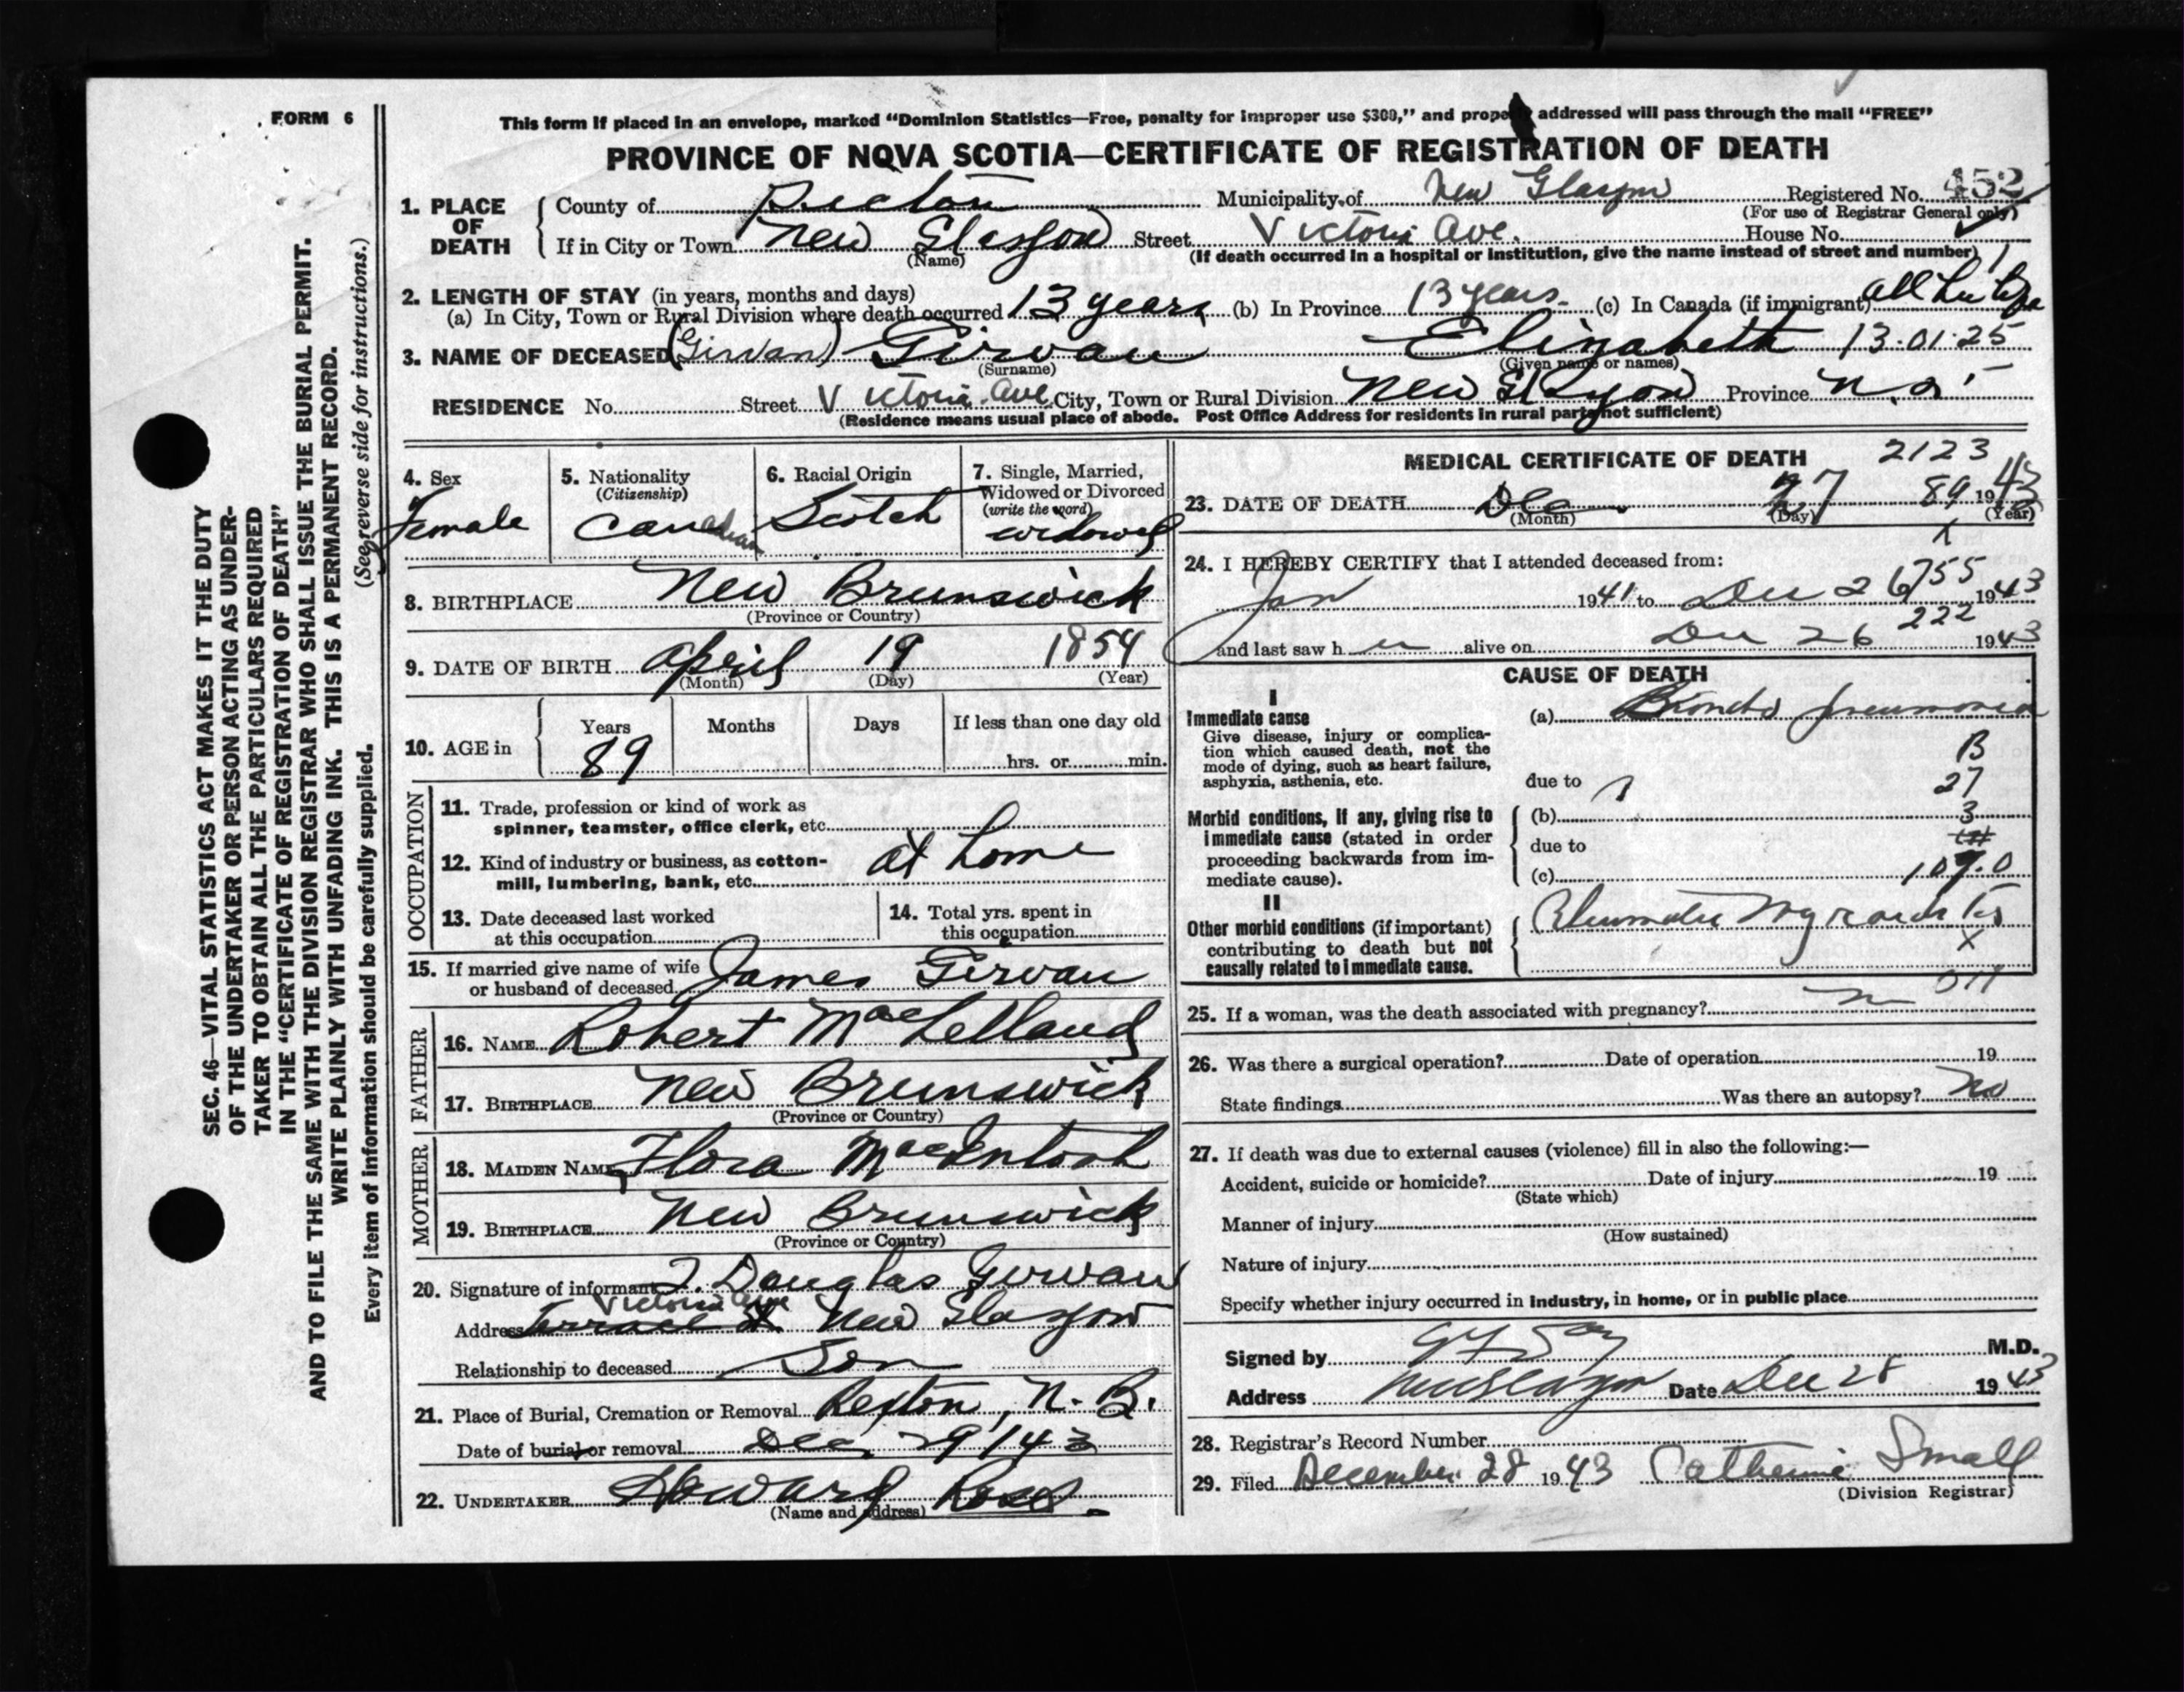 FORM 6
This form if placed in an envelope, marked “Dominion Statistics—Free, penalty for improper use $300,” and properly addressed will pass through the mail “FREE”
PROVINCE OF NOVA SCOTIA—CERTIFICATE OF REGISTRATION OF DEATH
1. PLACE OF DEATH
County of Pictou Municipality of New Glasgow Registered No. 452
(For use of Registrar General only)
If in City or Town New Glasgow Street Victoria Ave. House No.
(Name) (If death occurred in a hospital or institution, give the name instead of street and number)
2. LENGTH OF STAY (in years, months and days)
(a) In City, Town or Rural Division where death occurred 13 years (b) In Province 13 years (c) In Canada (if immigrant) all her life
3. NAME OF DECEASED (Girvan) Girvan Elizabeth 13.01.25
(Surname) (Given name or names)
RESIDENCE No. Street Victoria Ave City, Town or Rural Division New Glasgow Province N.S.
(Residence means usual place of abode. Post Office Address for residents in rural parts not sufficient)
4. Sex
Female
5. Nationality
(Citizenship)
Canadian
6. Racial Origin
Scotch
7. Single, Married,
Widowed or Divorced
(write the word)
widowed
8. BIRTHPLACE New Brunswick
(Province or Country)
9. DATE OF BIRTH April 19 1854
(Month) (Day) (Year)
10. AGE in
Years Months Days If less than one day old
89 hrs. or min.
OCCUPATION
11. Trade, profession or kind of work as
spinner, teamster, office clerk, etc.
12. Kind of industry or business, as cotton-
mill, lumbering, bank, etc. at home
13. Date deceased last worked
at this occupation
14. Total yrs. spent in
this occupation
15. If married give name of wife
or husband of deceased James Girvan
FATHER
16. NAME Robert MacLelland
17. BIRTHPLACE New Brunswick
(Province or Country)
MOTHER
18. MAIDEN NAME Flora MacIntosh
19. BIRTHPLACE New Brunswick
(Province or Country)
20. Signature of informant J. Douglas Girvan
Victoria Ave
Address Terrace St New Glasgow
Relationship to deceased Son
21. Place of Burial, Cremation or Removal Rexton, N.B.
Date of burial or removal Dec. 29/43
22. UNDERTAKER Howard Ross
(Name and address)
MEDICAL CERTIFICATE OF DEATH 2123
23. DATE OF DEATH Dec 27 89 1943
(Month) (Day) (Year)
X
24. I HEREBY CERTIFY that I attended deceased from:
755
Jan 1941 to Dec 26 1943
222
and last saw her alive on Dec 26 1943
CAUSE OF DEATH
I
Immediate cause
Give disease, injury or complica-
tion which caused death, not the
mode of dying, such as heart failure,
asphyxia, asthenia, etc.
(a) Broncho pneumonia
B
due to 27
Morbid conditions, if any, giving rise to
immediate cause (stated in order
proceeding backwards from im-
mediate cause).
(b) 3
due to
(c) 107.0
II
Other morbid conditions (if important)
contributing to death but not
causally related to immediate cause.
Rheumatic Myocarditis
X
011
25. If a woman, was the death associated with pregnancy? no
26. Was there a surgical operation? Date of operation 19
State findings Was there an autopsy? No
27. If death was due to external causes (violence) fill in also the following:—
Accident, suicide or homicide? Date of injury 19
(State which)
Manner of injury
(How sustained)
Nature of injury
Specify whether injury occurred in industry, in home, or in public place
Signed by M.D.
Address New Glasgow Date Dec 28 1943
28. Registrar’s Record Number
29. Filed December 28 1943 Catherine Small
(Division Registrar)
SEC. 46—VITAL STATISTICS ACT MAKES IT THE DUTY
OF THE UNDERTAKER OR PERSON ACTING AS UNDER-
TAKER TO OBTAIN ALL THE PARTICULARS REQUIRED
IN THE “CERTIFICATE OF REGISTRATION OF DEATH”
AND TO FILE THE SAME WITH THE DIVISION REGISTRAR WHO SHALL ISSUE THE BURIAL PERMIT.
WRITE PLAINLY WITH UNFADING INK. THIS IS A PERMANENT RECORD.
(See reverse side for instructions.)
Every item of information should be carefully supplied.